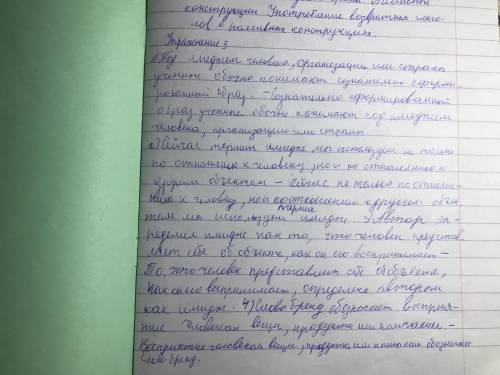 конструкции. Употребление возвратных глаго-
лов в пассивных конструкциях.
Упражнение 3
1) Под имиджем человека, организации или страны
учёные обычно понимают сознательно сформи-
рованный образ. – Сознательно сформированный
образ ученые обычно понимают под имиджем
человека, организации или страны.
2) Сейчас термин имидж мы используем не только
по отношению к человеку, но и по отношению к
другим объектам – Сейчас не только по отноше-
нию к человеку, но и по отношению к другим объек-
там мы используем термин имидж. 3) Автор оп-
ределил имидж как то, что человек представ-
ляет себе об объекте, как он его воспринимает –
То, что человек представляет себе об объекте,
как он его воспринимает, определено автором
как имидж. 4) Слово бренд обозначает восприя-
тие человеком вещи, продукта или компании –
Восприятие человеком вещи, продукта или компании обозначает
слово бренд.